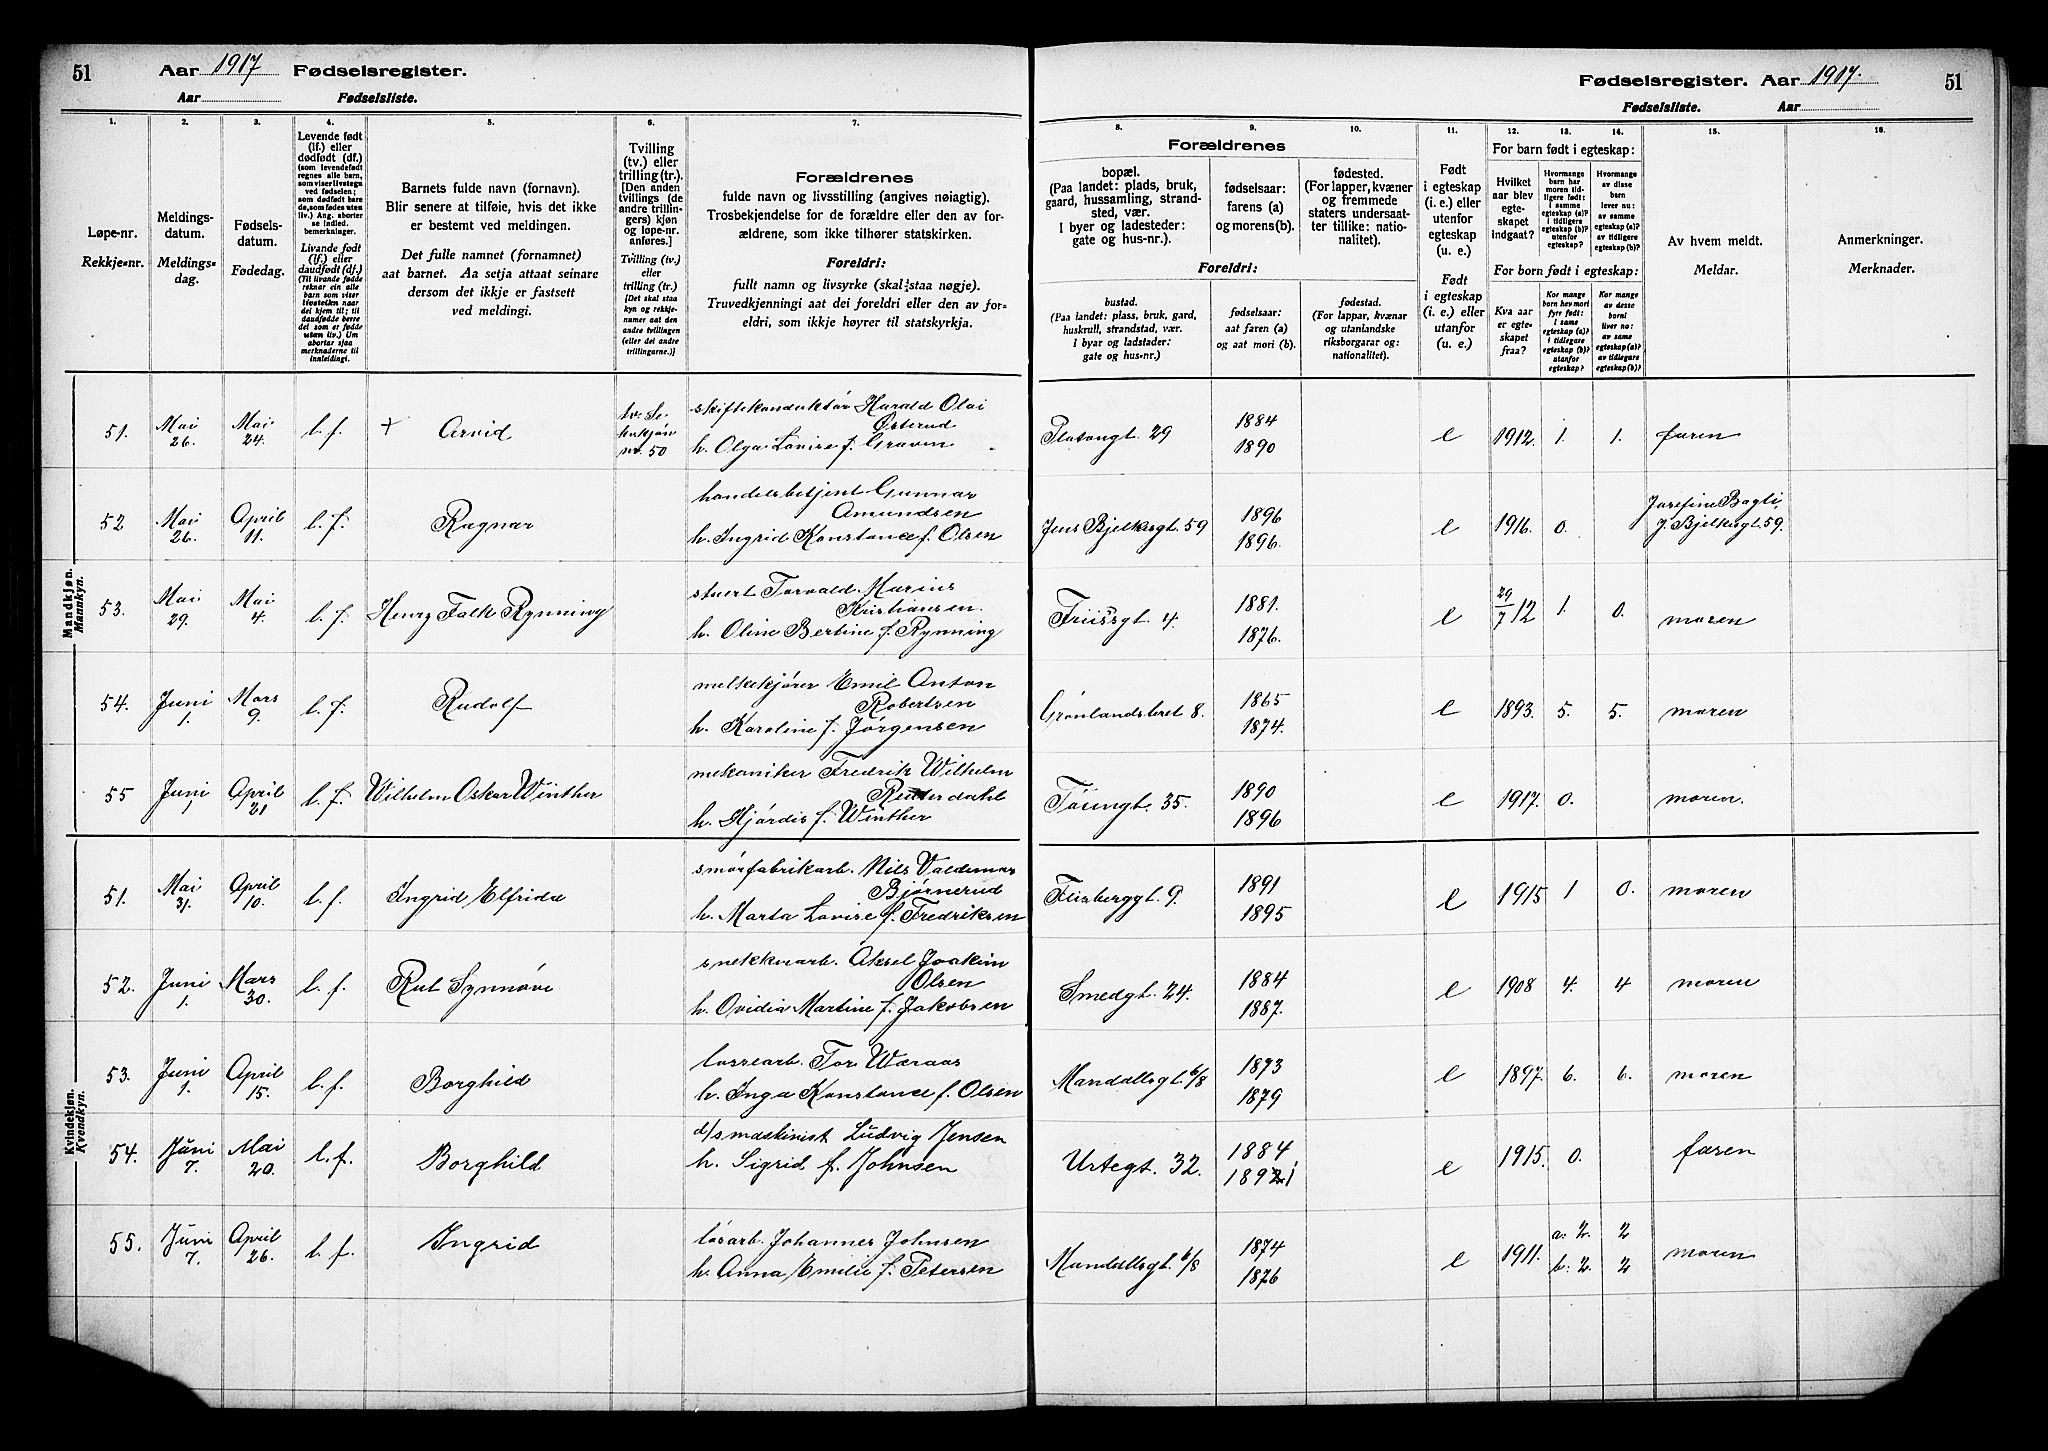 51 Aar 1917 Fødselsregister.
Aar Fødselsliste.
Fødselsregister. Aar 1917. 51
Fødselsliste. Aar
1. 2. 3. 4. 5. 6. 7.
8. 9. 10. 11. 12. 13. 14. 15. 16.
Løpe-nr.
Rekkje-nr.
Meldings-
datum.
Meldings-
dag.
Fødsels-
datum.
Fødedag.
Levende født
(lf.) eller
dødfødt (df.)
(som levendefødt
regnes alle barn,
som viser livstegn
ved fødselen;
som dødfødt bare
de, som fødes uten
liv.) Ang. aborter
se indled.
bemerkninger.
Livande født
(lf.) eller
daudfødt (df.)
(Til livande fødde
reknar ein alle
born som viser
livsteikn naar
dei kjem til; til
daudfødde berre
dei som er fødde
utan liv.) Um
abortar sjaa
merknaderne til
innleidingi.
Barnets fulde navn (fornavn).
Blir senere at tilføie, hvis det ikke
er bestemt ved meldingen.
Det fulle namnet (fornamnet)
aat barnet. Aa setja attaat seinare
dersom det ikkje er fastsett
ved meldingi.
Tvilling
(tv.) eller
trilling (tr.).
[Den anden
tvillings (de
andre trillin-
gers) kjøn
og løpe-nr.
anføres.]
Tvilling (tv.)
eller
trilling (tr.)
[Det skal staa
kyn og rekkje-
numer aat den
andre tvillingen
(eller dei andre
trillingarne.)]
Forældrenes
fulde navn og livsstilling (angives nøiagtig).
Trosbekjendelse for de forældre eller den av for-
ældrene, som ikke tilhører statskirken.
Foreldri:
fullt namn og livsyrke (skal staa nøgje).
Truvedkjenningi aat dei foreldri eller den av for-
eldri, som ikkje høyrer til statskyrkja.
Forældrenes
bopæl.
(Paa landet: plads, bruk,
gaard, hussamling, strand-
sted, vær.
I byer og ladesteder:
gate og hus-nr.).
fødselsaar:
farens (a)
og morens (b).
fødested.
(For lapper, kvæner
og fremmede
staters undersaat-
ter tillike: natio-
nalitet).
Foreldri:
bustad.
(Paa landet: plass, bruk, gard,
huskrull, strandstad, vær.
I byar og ladstader:
gate og hus-nr.)
fødselsaar:
aat faren (a)
og aat mori (b).
fødestad.
(For lappar, kvænar
og utanlandske
riksborgarar og:
nationalitet).
Født
i egteskap
(i. e.) eller
utenfor
egteskap
(u. e.)
Født
i egteskap
(i. e.) eller
utanfor
(u. e.)
For barn født i egteskap:
Hvilket
aar blev
egte-
skapet
indgaat?
Hvormange
barn har
moren tid-
ligere født:
i samme
egteskap (a)?
i tidligere
egteskap (b)?
utenfor
egteskap?
Hvormange
av disse
barn
lever nu:
av samme
egteskap (a)?
av tidligere
egteskap (b)?
For born født i egteskap:
Kva aar
er egte-
skapet
fraa?
Kor mange
born hev mori
fyrr født:
i same
egteskap (a)?
i tidlegare
egteskap (b)?
utanfor
egteskap?
Kor mange
av desse
borni
liver no:
av same
egteskap (a)?
av tidlegare
egteskap (b)?
Av hvem meldt.
Meldar.
Anmerkninger.
Merknader.
Mandkjøn.
Mannkyn.
51. Mai 26. Mai 24. l. f. + Arvid nr. 50 skiftekonduktør Harald Olai
Østerud
h. Olga Lovise f. Graven
Platougt. 29 1884 1890 e 1912. 1. 1. faren
52 Mai 26. April 11. l. f. Ragnar handelsbetjent Gunnar
Amundsen
h. Ingrid Konstance f. Olsen
Jens Bjelkesgt. 59 1896 1896. e 1916. 0. Josefine
J. Bjelkesgt. 59.
53. Mai 29. Mai 4. l. f. Henry Falk Rynning stuert Torvald Marius
Kristiansen.
h. Oline Bertine f. Rynning
Friisgt. 4. 1881. 1876. e 29/7 12 1. 0. moren
54. Juni 1. Mars 9. l. f. Rudolf melkekjører Emil Anton
Robertsen
h. Karoline f. Jørgensen
Grønlandsleret 8. 1865 1874. e 1893. 5. 5. moren
55 Juni 1 April 21 l. f. Wilhelm Oskar Winther mekaniker Fredrik Wilhelm
h. Hjørdis f. Winther
Tøiengt. 35. 1890 1896 e 1917. 0. moren.
Kvindekjøn.
Kvendkyn.
51. Mai 31. April 10. l. f. Ingrid Elfrida smørfabrikarb. Nils Valdemar
Bjørnerud
h. Marta Lovise f. Fredriksen
9. 1891 1895 e 1915 1 0. moren
52. Juni 1. Mars 30. l. f. Rut Synnøve snekkerarb. Aksel Joakim
Olsen
h. Ovidia Martine f. Jakobsen
Smedgt. 24. 1884 1887. e 1908 4. 4 moren
53. Juni 1. April 15. l. f. Borghild lossearb. Tor Wæraas
h. Inga Konstance f. Olsen
Mandallsgt. 6/8 1873 1879 e 1897. 6. 6. moren
54. Juni 7. Mai 20. l. f. Borghild d/s maskinist Ludvig Jensen
h. Sigrid f. Johnsen
Urtegt. 32. 1884 e 1915. 0. faren
55. Juni 7. April 26. l. f. Ingrid løsarb. Johannes Johnsen
h. Anna Emilie f. Petersen
Mandallsgt. 6/8 1874 1876 e 1911. a: 2. 2
b: 2. 2 moren